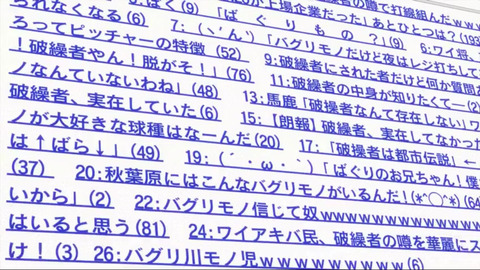 の噂で打線組んだｗｗ
が上場企業だった」あとひとつは？(193
られなくなる(6) ぱく(9) 「ばぐりもの？」(9) 6:ワイ将、
7:(ヽ'ん')「バグリモノだけど夜はレジ打ちして
ろってピッチャーの特徴(52) 9:破繰者にされた者だけど何か質問あ
!破繰者やん！脱がそ！」(76) 11:破繰者の中身が知りたくて―(2)
ノなんていないわね」(48) 13:馬鹿「破操者なんて存在しない」ワ
破繰者、実在していた(6) 15:【朗報】破繰者、実在してなかった
ノが大好きな球種はなーんだ(20) 17:「破操者は都市伝説」←
は↑ばら↓」(49) 19:(´・ω・｀)「ばぐりのお兄ちゃん！僕
(37) 20:秋葉原にはこんなバグリモノがいるんだ！(*^◯^*)(64
いから」(2) 22:バグリモノ信じて奴ｗｗｗｗｗｗｗｗｗｗｗｗｗ
はいると思う(81) 24:ワイアキバ民、破繰者の噂を華麗にス
け！(3) 26:バグリ川モノ児ｗｗｗｗｗｗｗｗｗ(6)